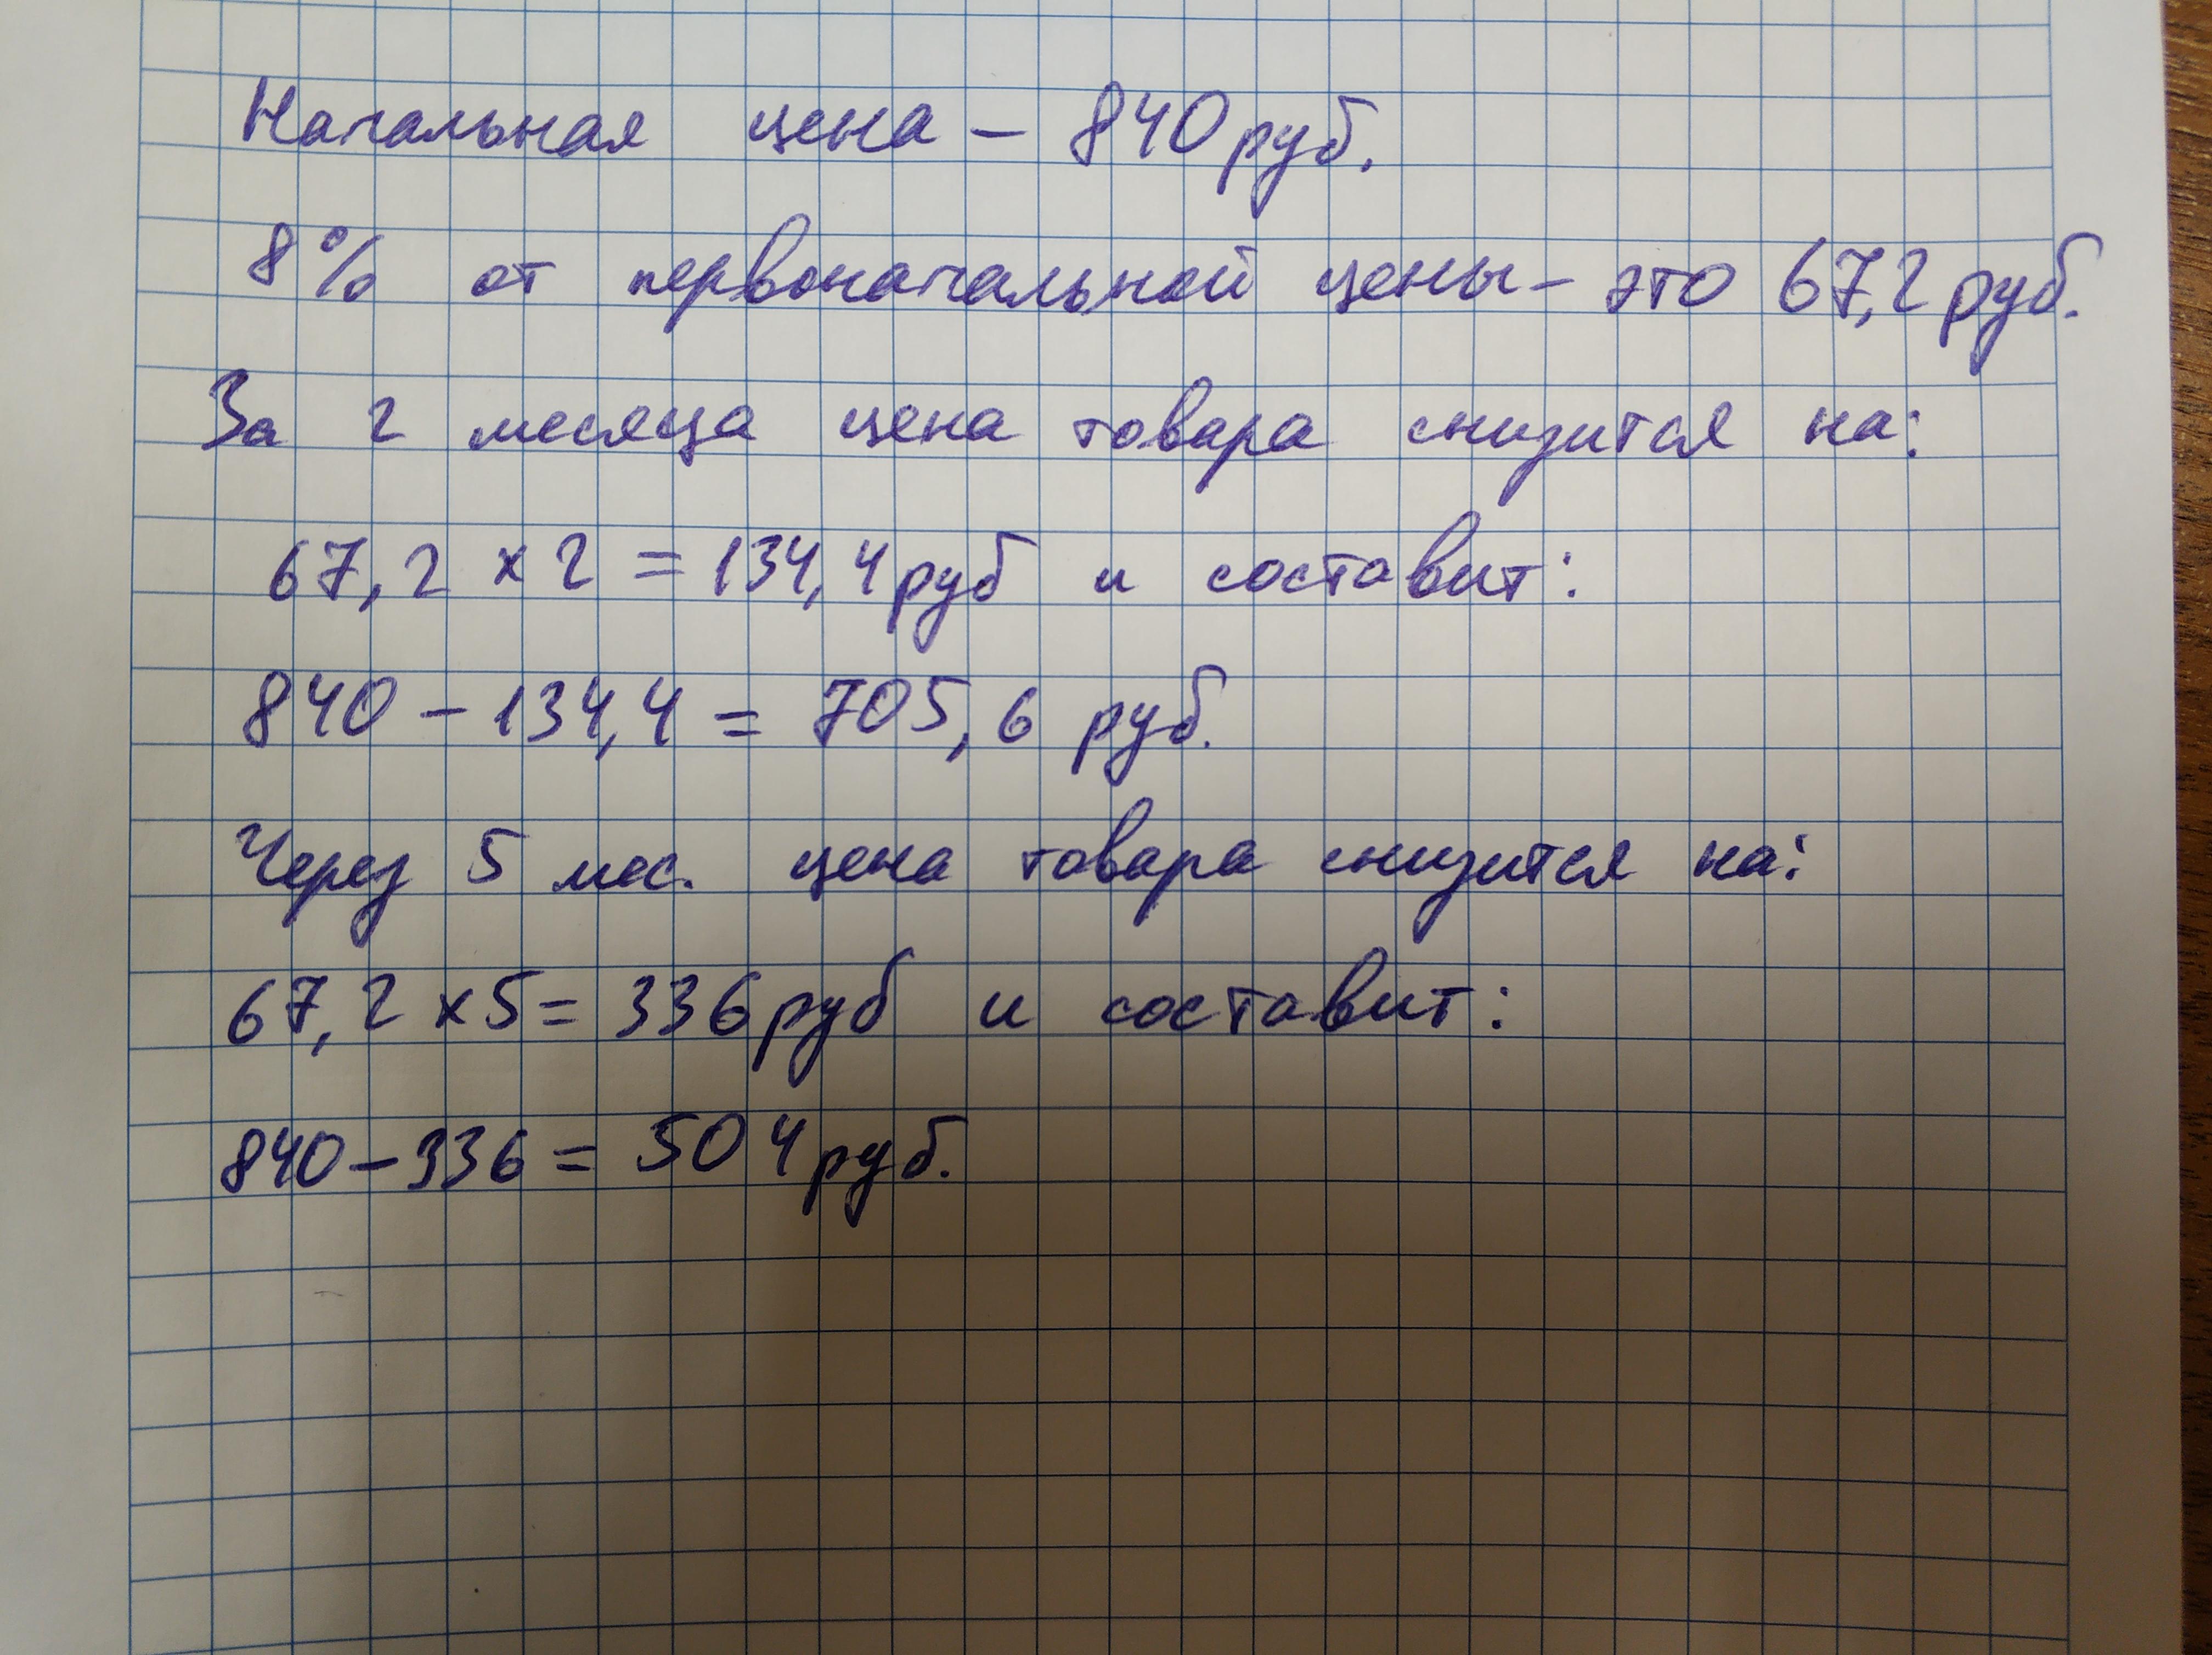 Начальная цена – 840 руб.
8% от первоначальной цены – это 67,2 руб.
За 2 месяца цена товара снизится на:
67,2 x 2 = 134,4 руб и составит:
840 – 134,4 = 705,6 руб.
Через 5 мес. цена товара снизится на:
67,2 x 5 = 336 руб и составит:
840 – 336 = 504 руб.